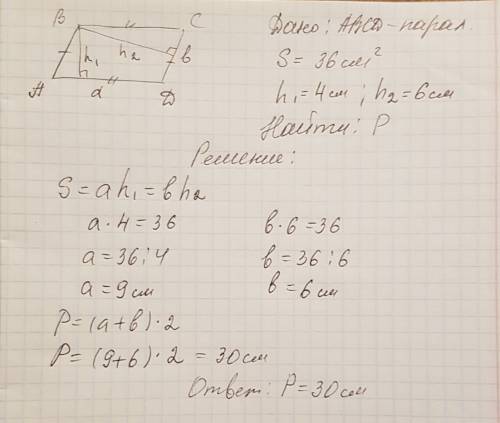 B C Дано: ABCD - парал.
h₁ h₂ b S = 36 см²
A a D h₁ = 4 см ; h₂ = 6 см
Найти: P
Решение:
S = a h₁ = b h₂
a · 4 = 36 b · 6 = 36
a = 36 : 4 b = 36 : 6
a = 9 см b = 6 см
P = (a + b) · 2
P = (9 + 6) · 2 = 30 см
Ответ: P = 30 см